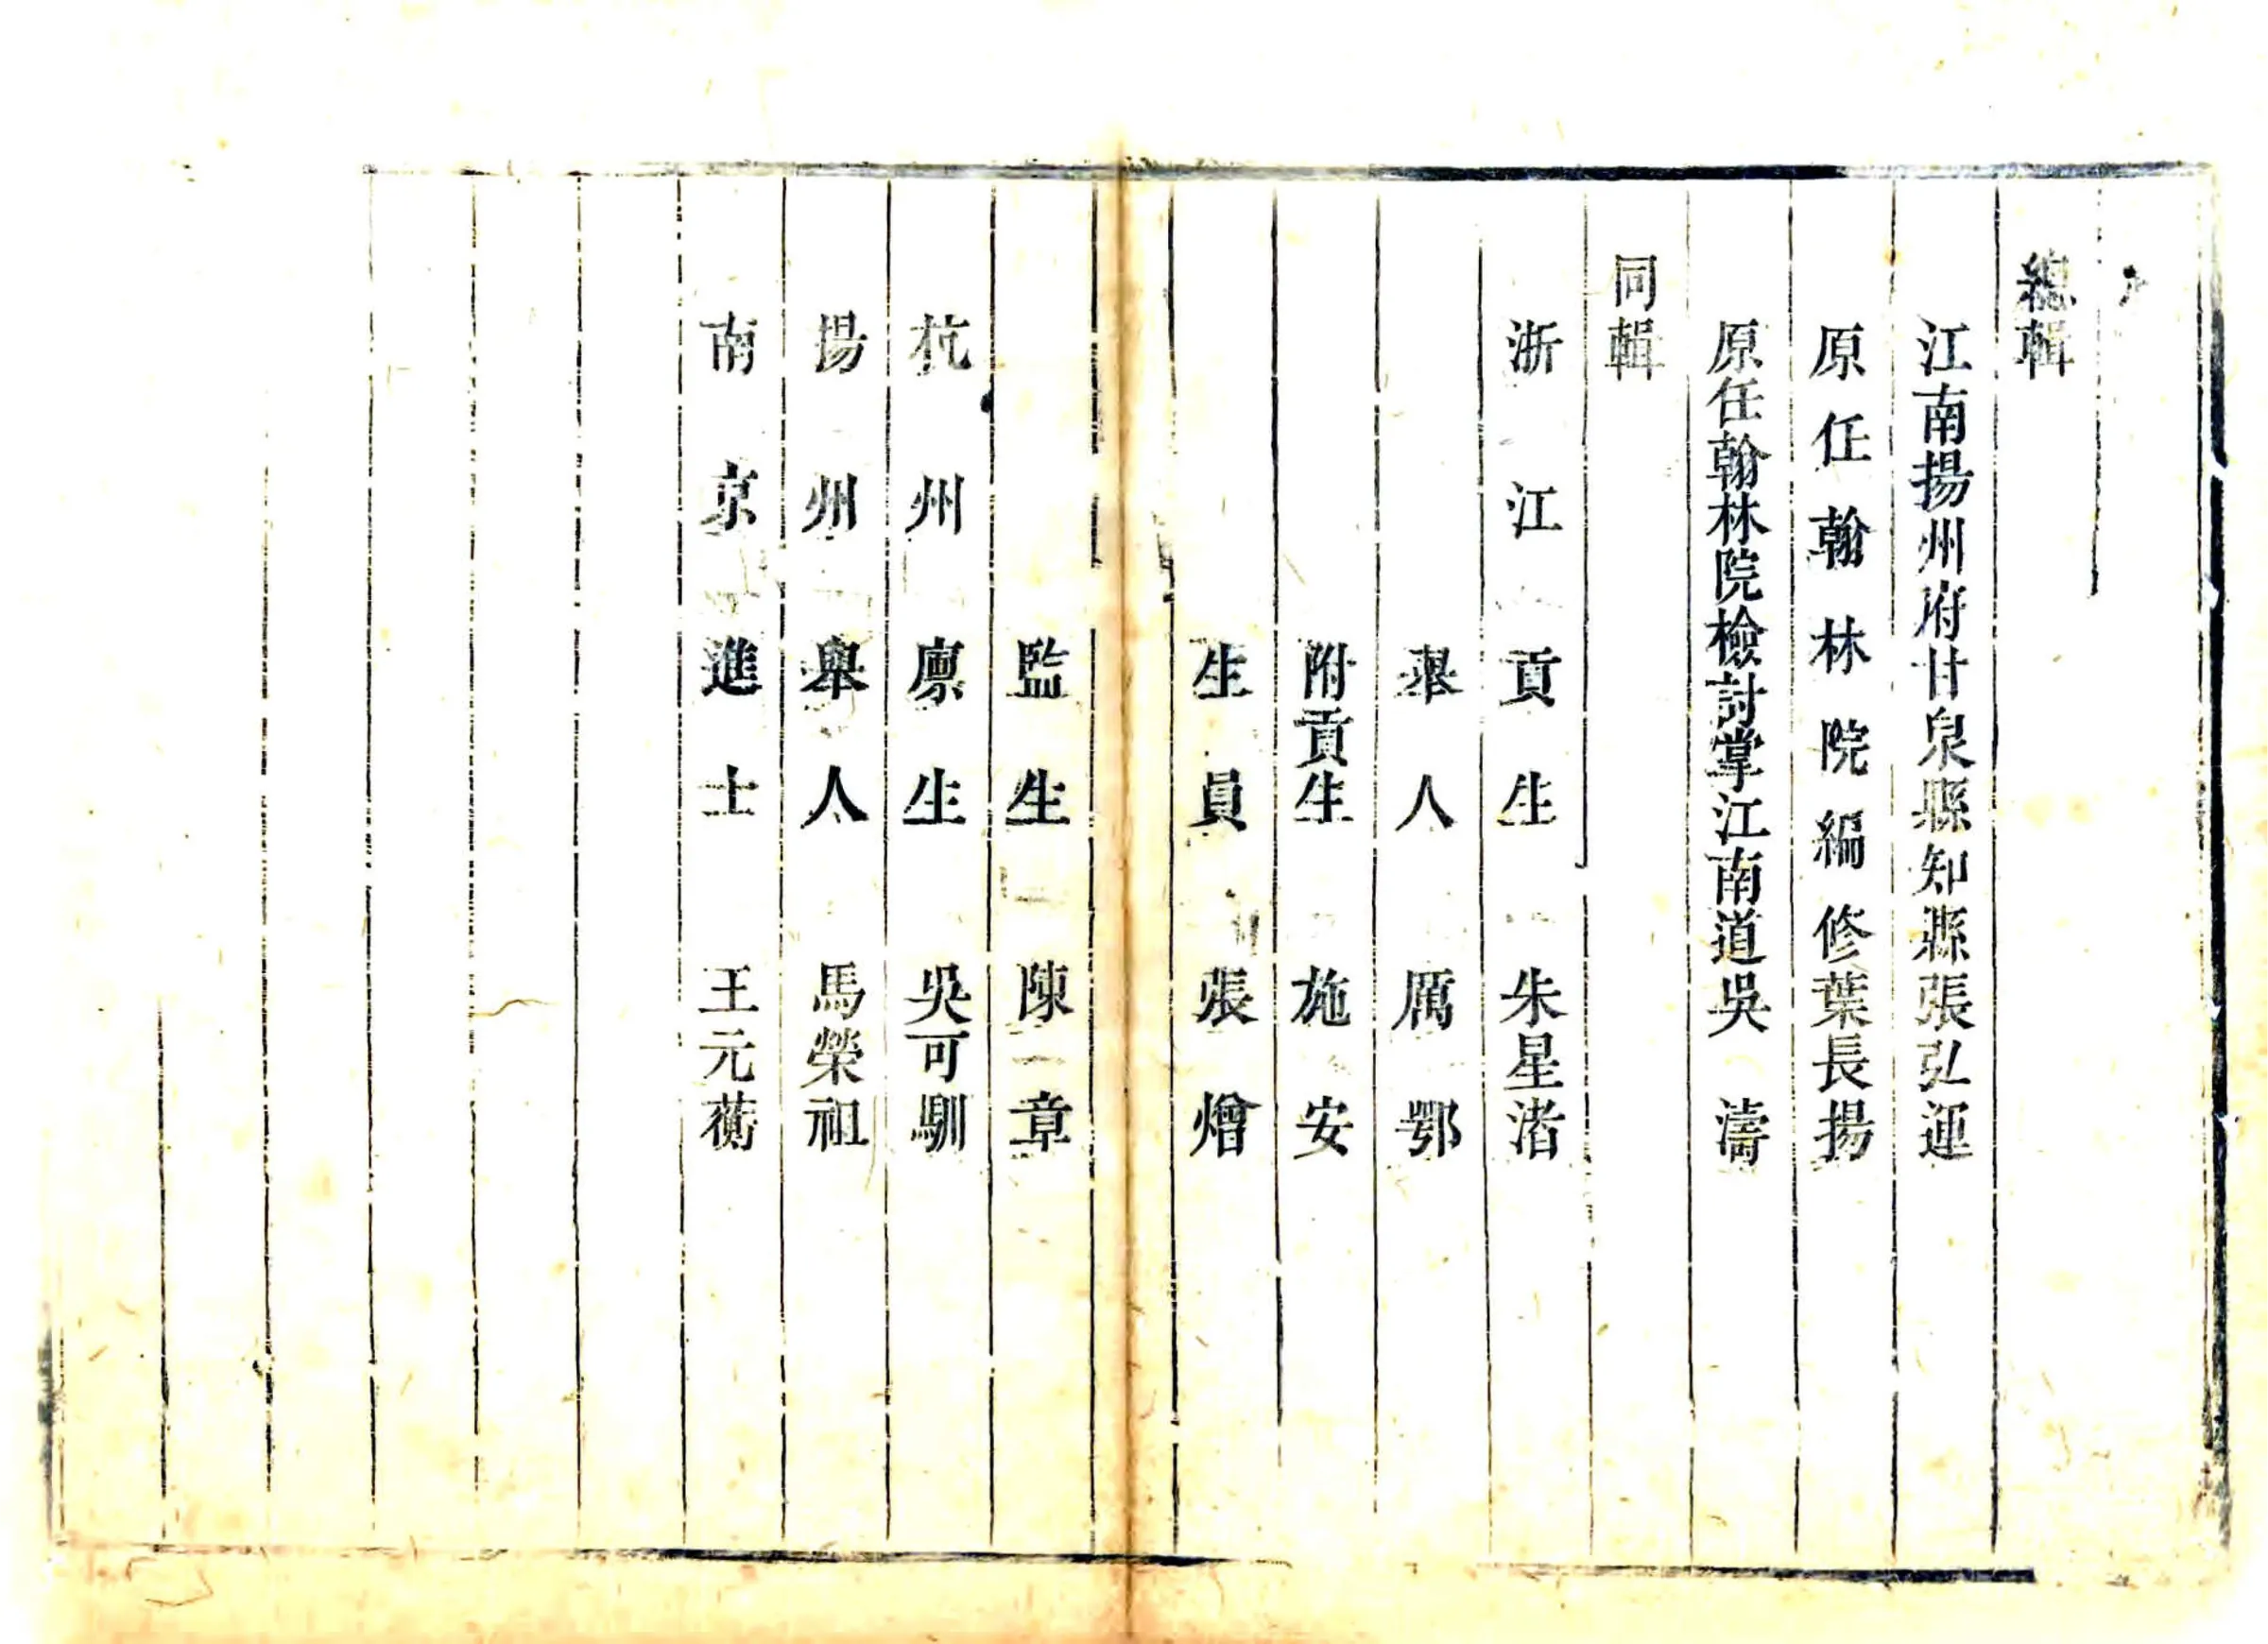 總輯
江南揚州府甘泉縣知縣張弘運
原任翰林院編修葉長揚
原任翰林院檢討掌江南道吳濤
同輯
浙江貢生朱星渚
舉人厲鄂
附貢生施安
生員張熷
監生陳章
杭州廪生吳可馴
揚州舉人馬榮祖
南京進士王元蘅